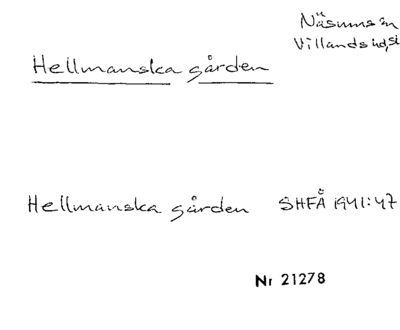 Näsums sn
Villands hd, Sk
Hellmanska gården
Hellmanska gården SHFÅ 1941:47
Nr 21278